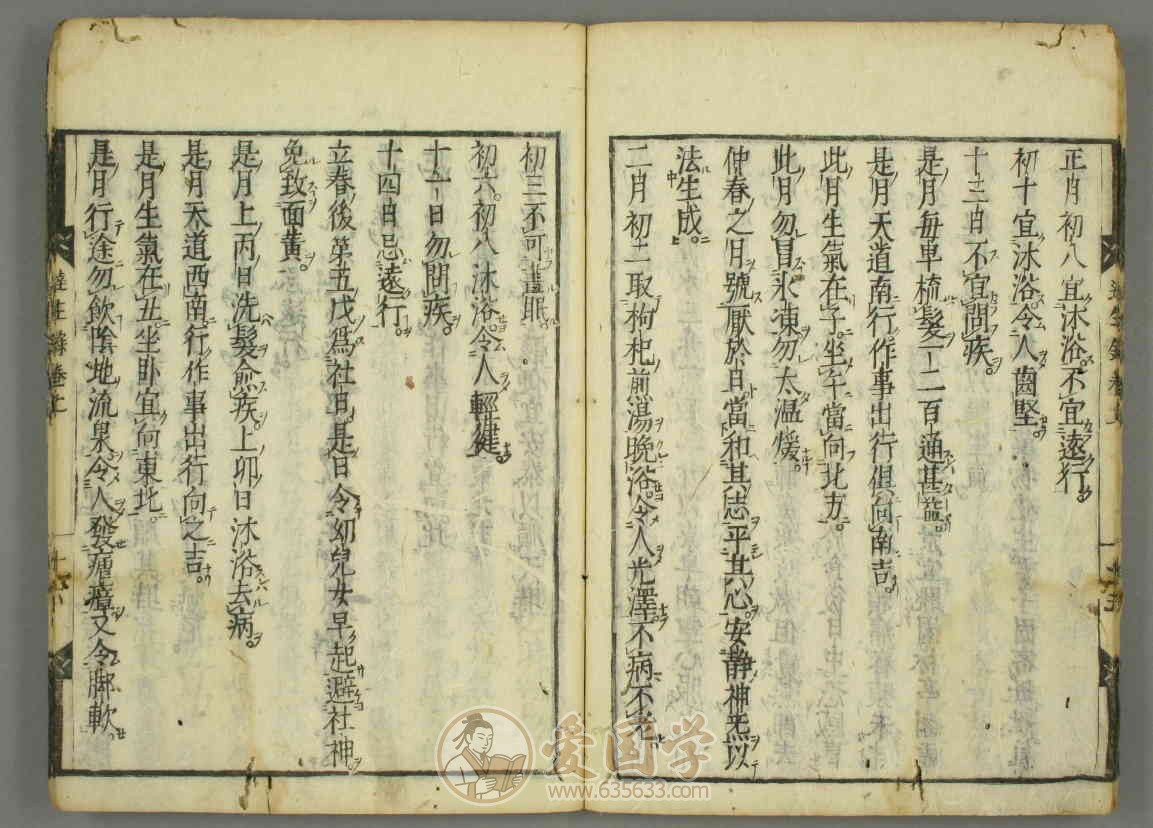 正月初八宜沐浴。不宜遠行
初十宜沐浴。令人齒堅。
十二日不宜問疾。
是月每早梳髮一二百通甚益。
是月天道南行。作事出行俱向南吉。
此月生氣在子。坐臥當向北方。
此月勿冐氷凍勿太温煖。
仲春之月號厭於日。當和其志平其心。安静神炁以
法生成。
二月初二取枸杞煎湯晚浴。令人光澤不病不老。
初三不可晝眠。
初六。初八沐浴。令人輕健。
十一日勿問疾。
十四日忌遠行。
立春後第五戊爲社日。是日令幼兒女早起避社神
免致面黄。
是月上丙日洗髮愈疾。上卯日沐浴去病。
是月天道西南行。作事出行向之吉。
是月生氣在丑。坐卧宜向東北。
是月行途勿飲陰地流泉。令人發瘧瘴又令脚軟
爱国学
www.635633.com